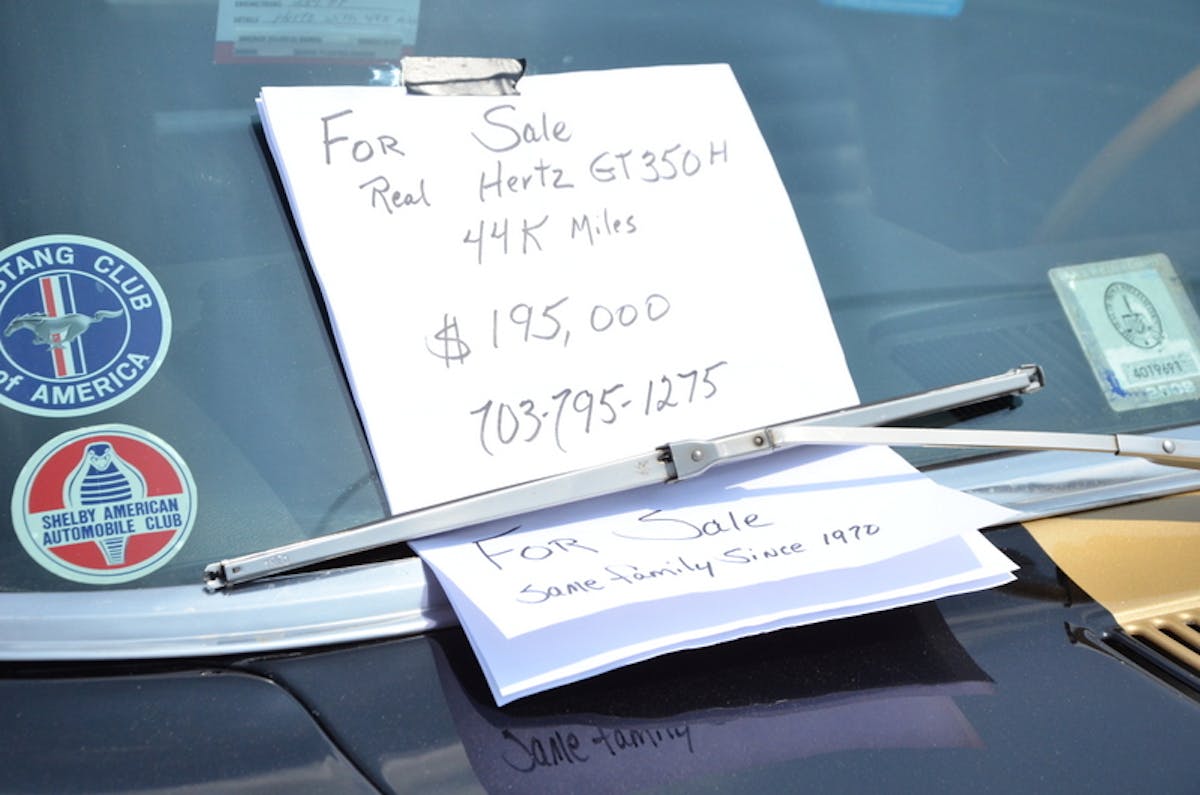 For Sale
Real Hertz GT350H
44K Miles
$195,000
703-795-1275
For Sale
Same family Since 1970
Same family
STANG CLUB
of AMERICA
SHELBY AMERICAN
AUTOMOBILE CLUB
4079691